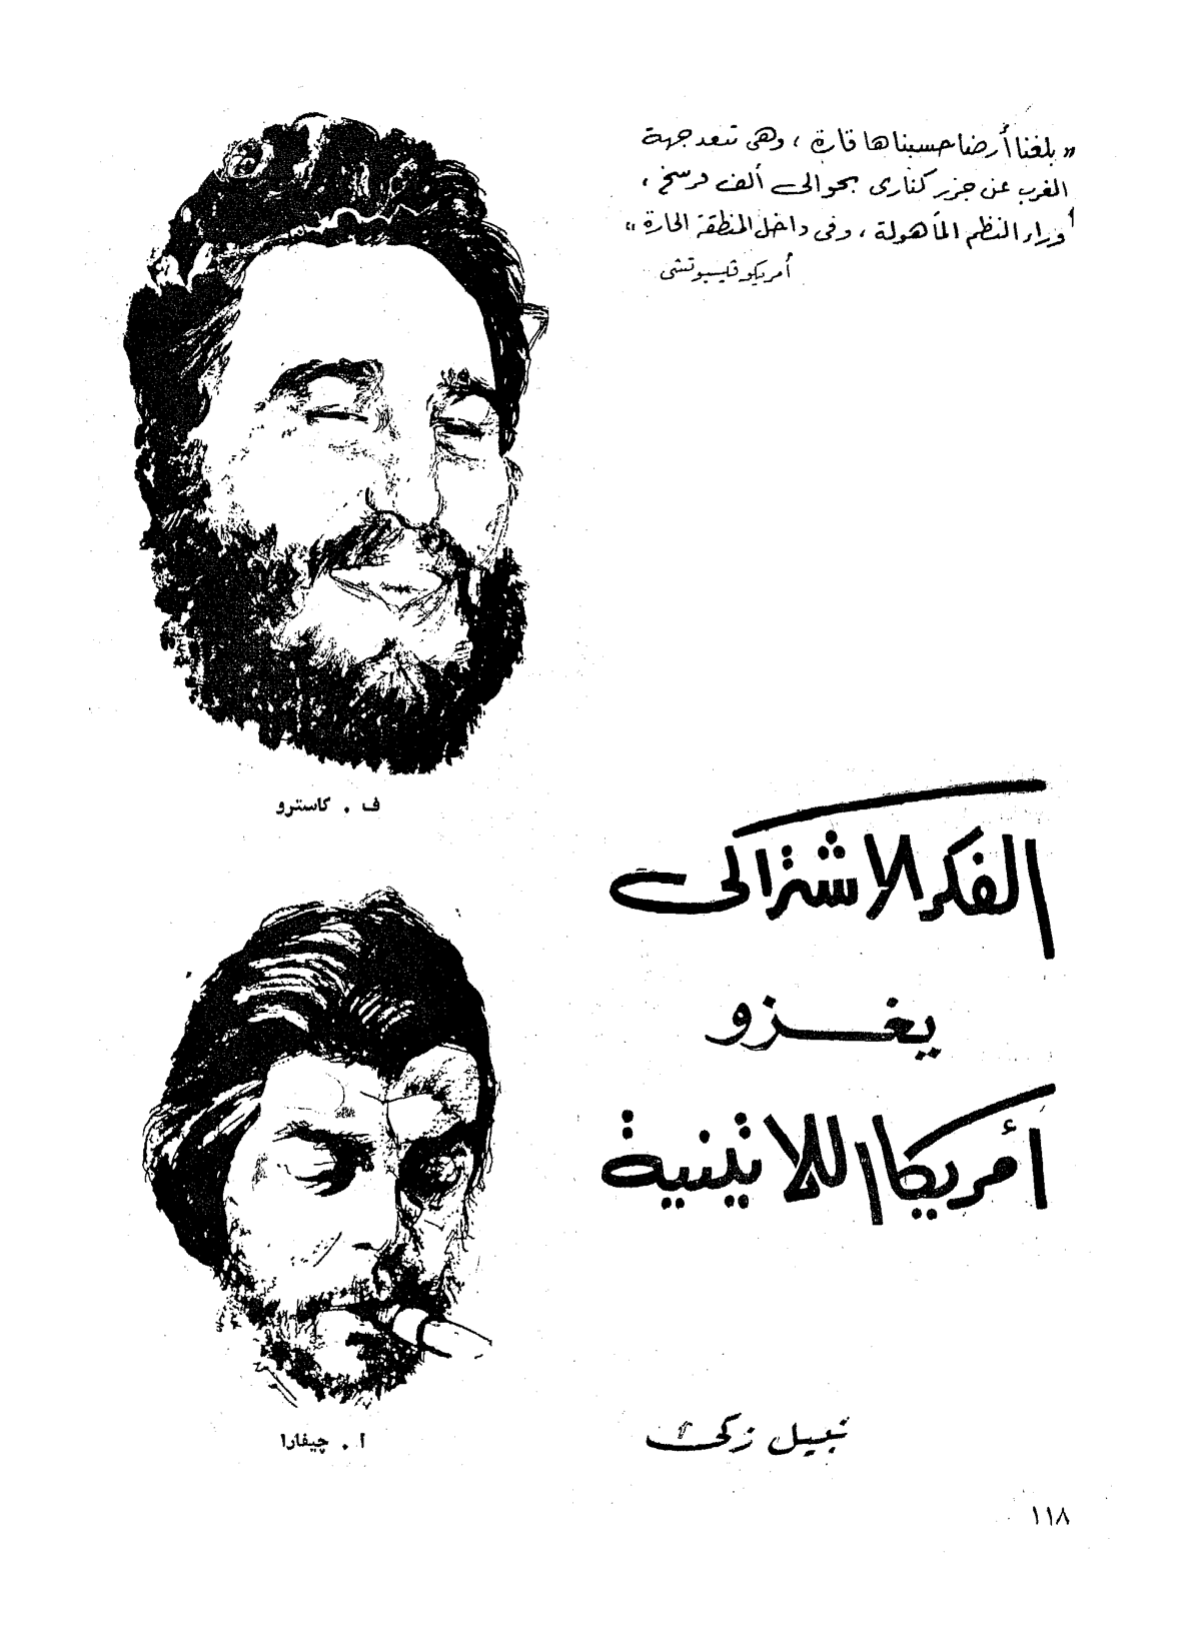 « بلغنا أرضا حسبناها قارة ، وهى تبعد جهة
الغرب عن جزر كنارى بحوالى ألف فرسخ ،
وراء النظم المأهولة ، وفى داخل المنطقة الحارة »
أمريكو فيسبوتشى
ف . كاسترو
الفكر الاشتراكى
يغزو
أمريكا اللاتينية
ا . چيفارا
نبيل زكى
١١٨